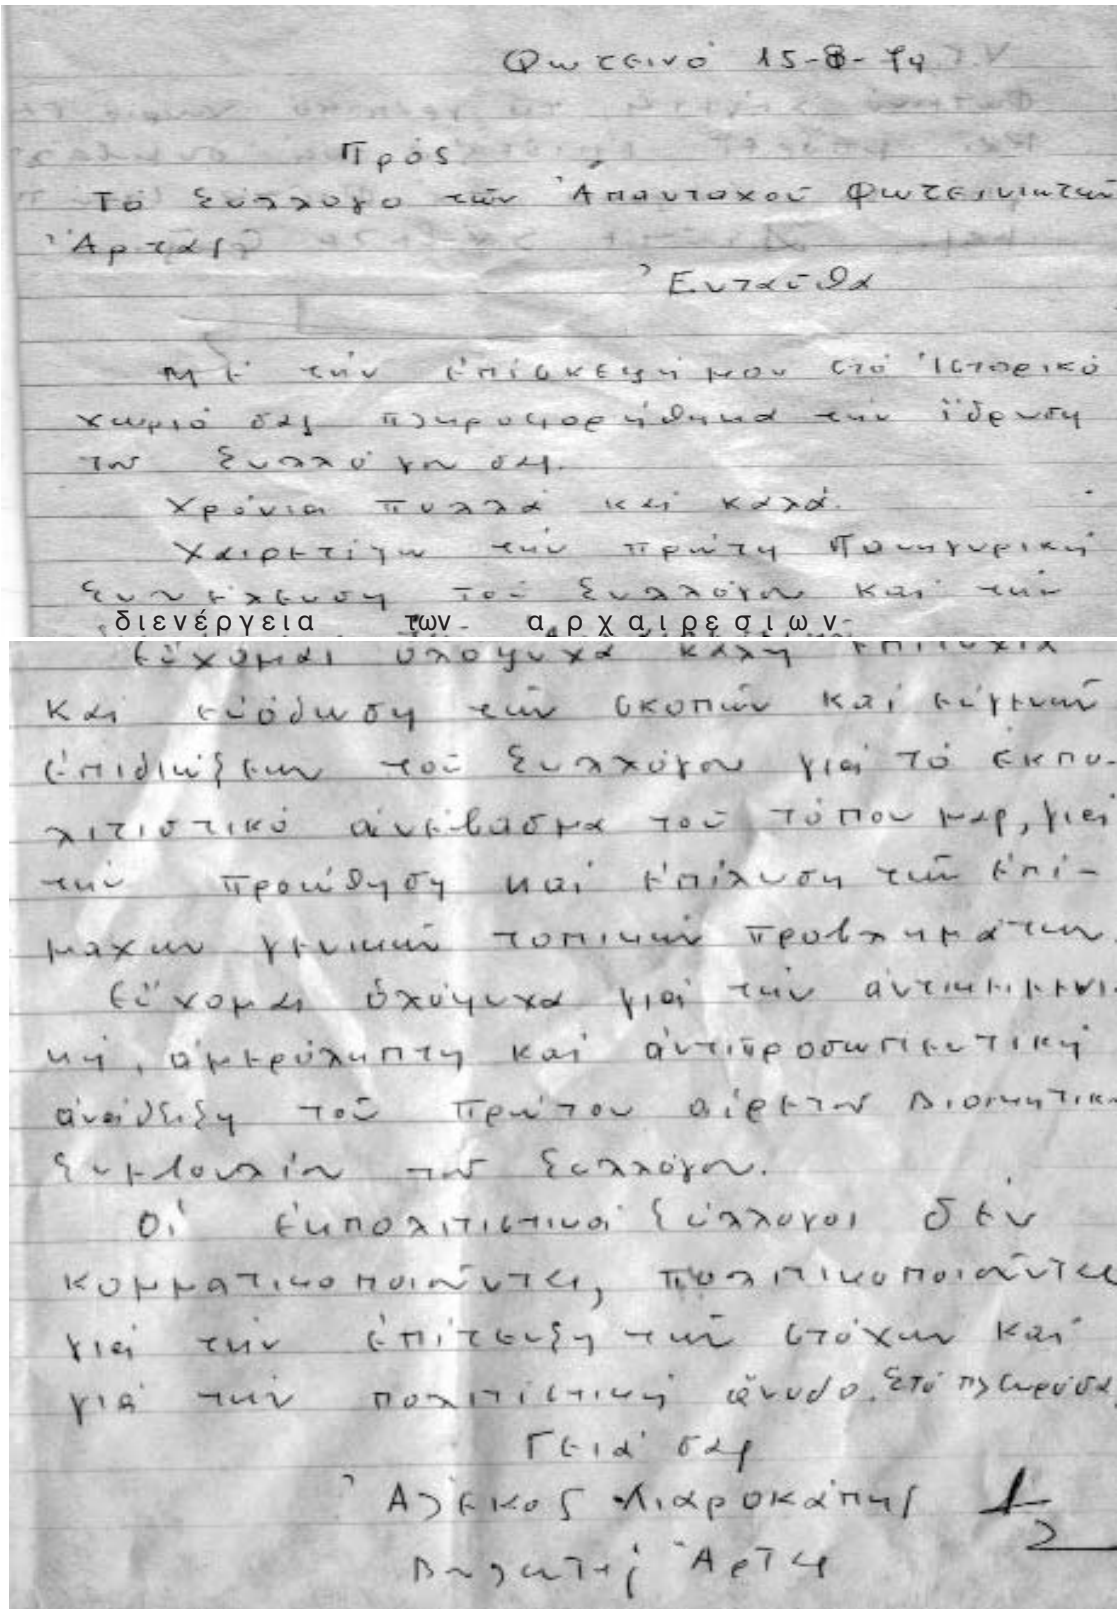 Φωτεινό 15-8-
Πρός
Τό Σύλλογο τῶν Ἁπανταχοῦ Φωτεινιωτῶν
Ἄρτας
Ἐνταῦθα
Μέ τήν ἐπίσκεψή μου στό Ἱστορικό
χωριό σας πληροφορήθηκα τήν ἵδρυση
τοῦ Συλλόγου σας.
Χρόνια πολλά καί καλά.
Χαιρετίζω τήν πρώτη Πανηγυρική
Συνέλευση τοῦ Συλλόγου καί τήν
διενέργεια των αρχαιρεσιων
Εὔχομαι ὁλόψυχα καλή ἐπιτυχία
καί εὐόδωση τῶν σκοπῶν καί εὐγενῶν
ἐπιδιώξεων τοῦ Συλλόγου γιά τό ἐκπο-
λιτιστικό ἀνέβασμα τοῦ τόπου μας, γιά
τήν προώθηση καί ἐπίλυση τῶν ἐπί-
μαχων γενικῶν τοπικῶν προβλημάτων.
Εὔχομαι ὁλόψυχα γιά τήν ἀντικειμενι-
κή, ἀμερόληπτη καί ἀντιπροσωπευτική
ἀνάδειξη τοῦ πρώτου αἱρετοῦ Διοικητικ
Συμβουλίου τοῦ Συλλόγου.
Οἱ ἐκπολιτιστικοί Σύλλογοι δέν
κομματικοποιοῦνται, πολιτικοποιοῦνται
γιά τήν ἐπίτευξη τῶν στόχων καί
γιά τήν πολιτιστική ἄνοδο. Στό πλευρό σα
Γειά σας
Ἀλέκος Λιαροκάπης
Βουλευτής Ἄρτας
1/2